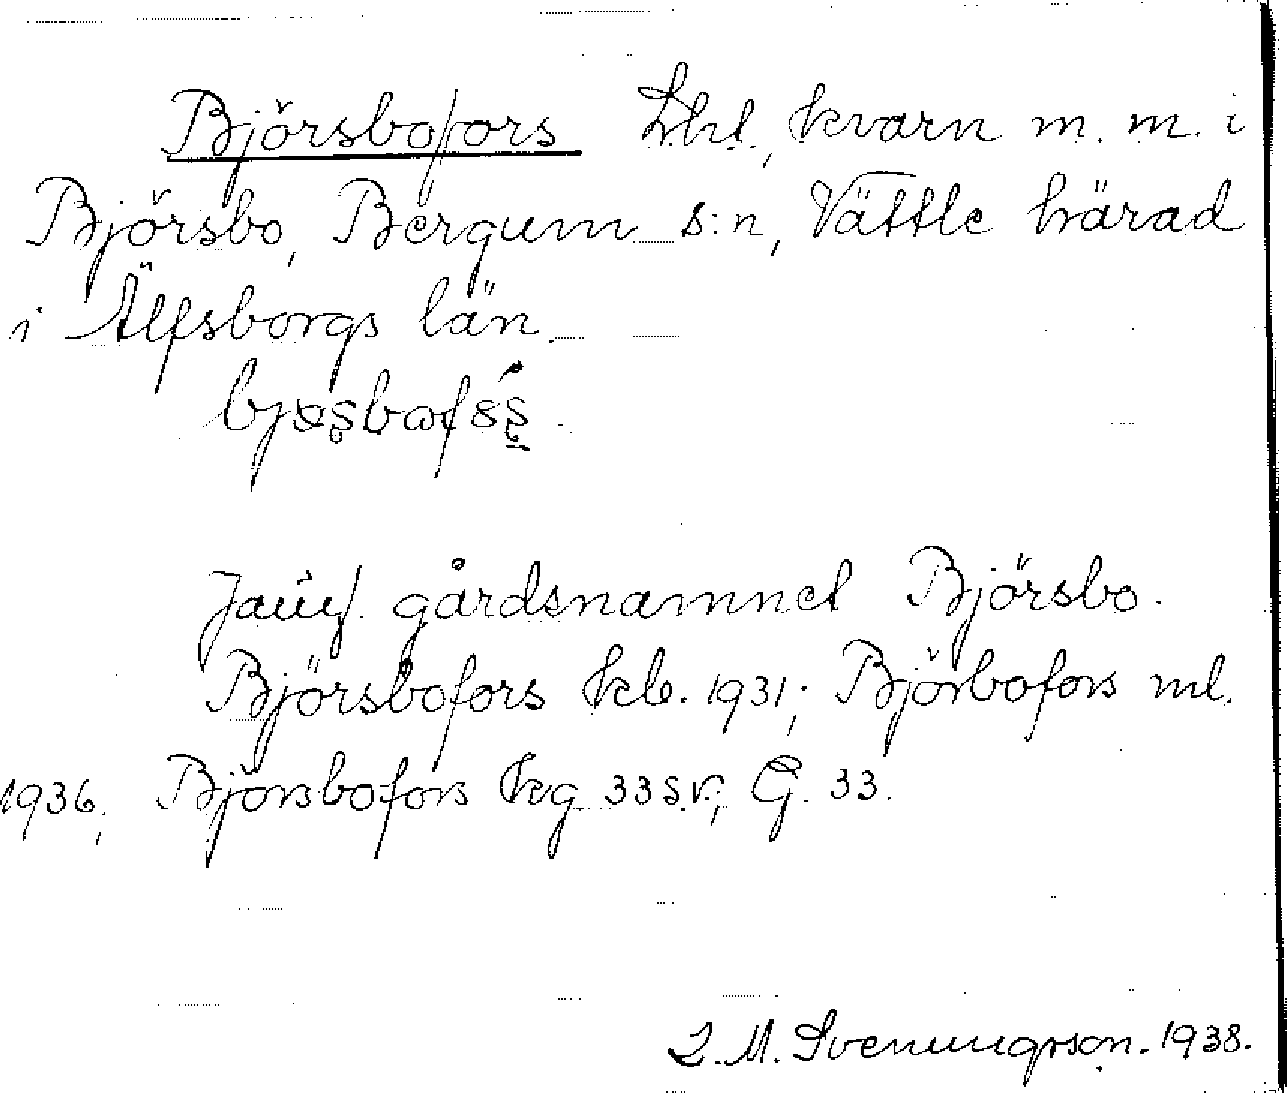 Björsbofors Lhl, kvarn m. m. i
Björsbo, Bergum s:n, Vättle härad
i Älfsborgs län.

Jämf. gårdsnamnet Björsbo.
Björsbofors kb. 1931; Björbofors ml.
1936; Björsbofors Kg 33 s.v., G. 33.
L. M. Svenungsson. 1938.